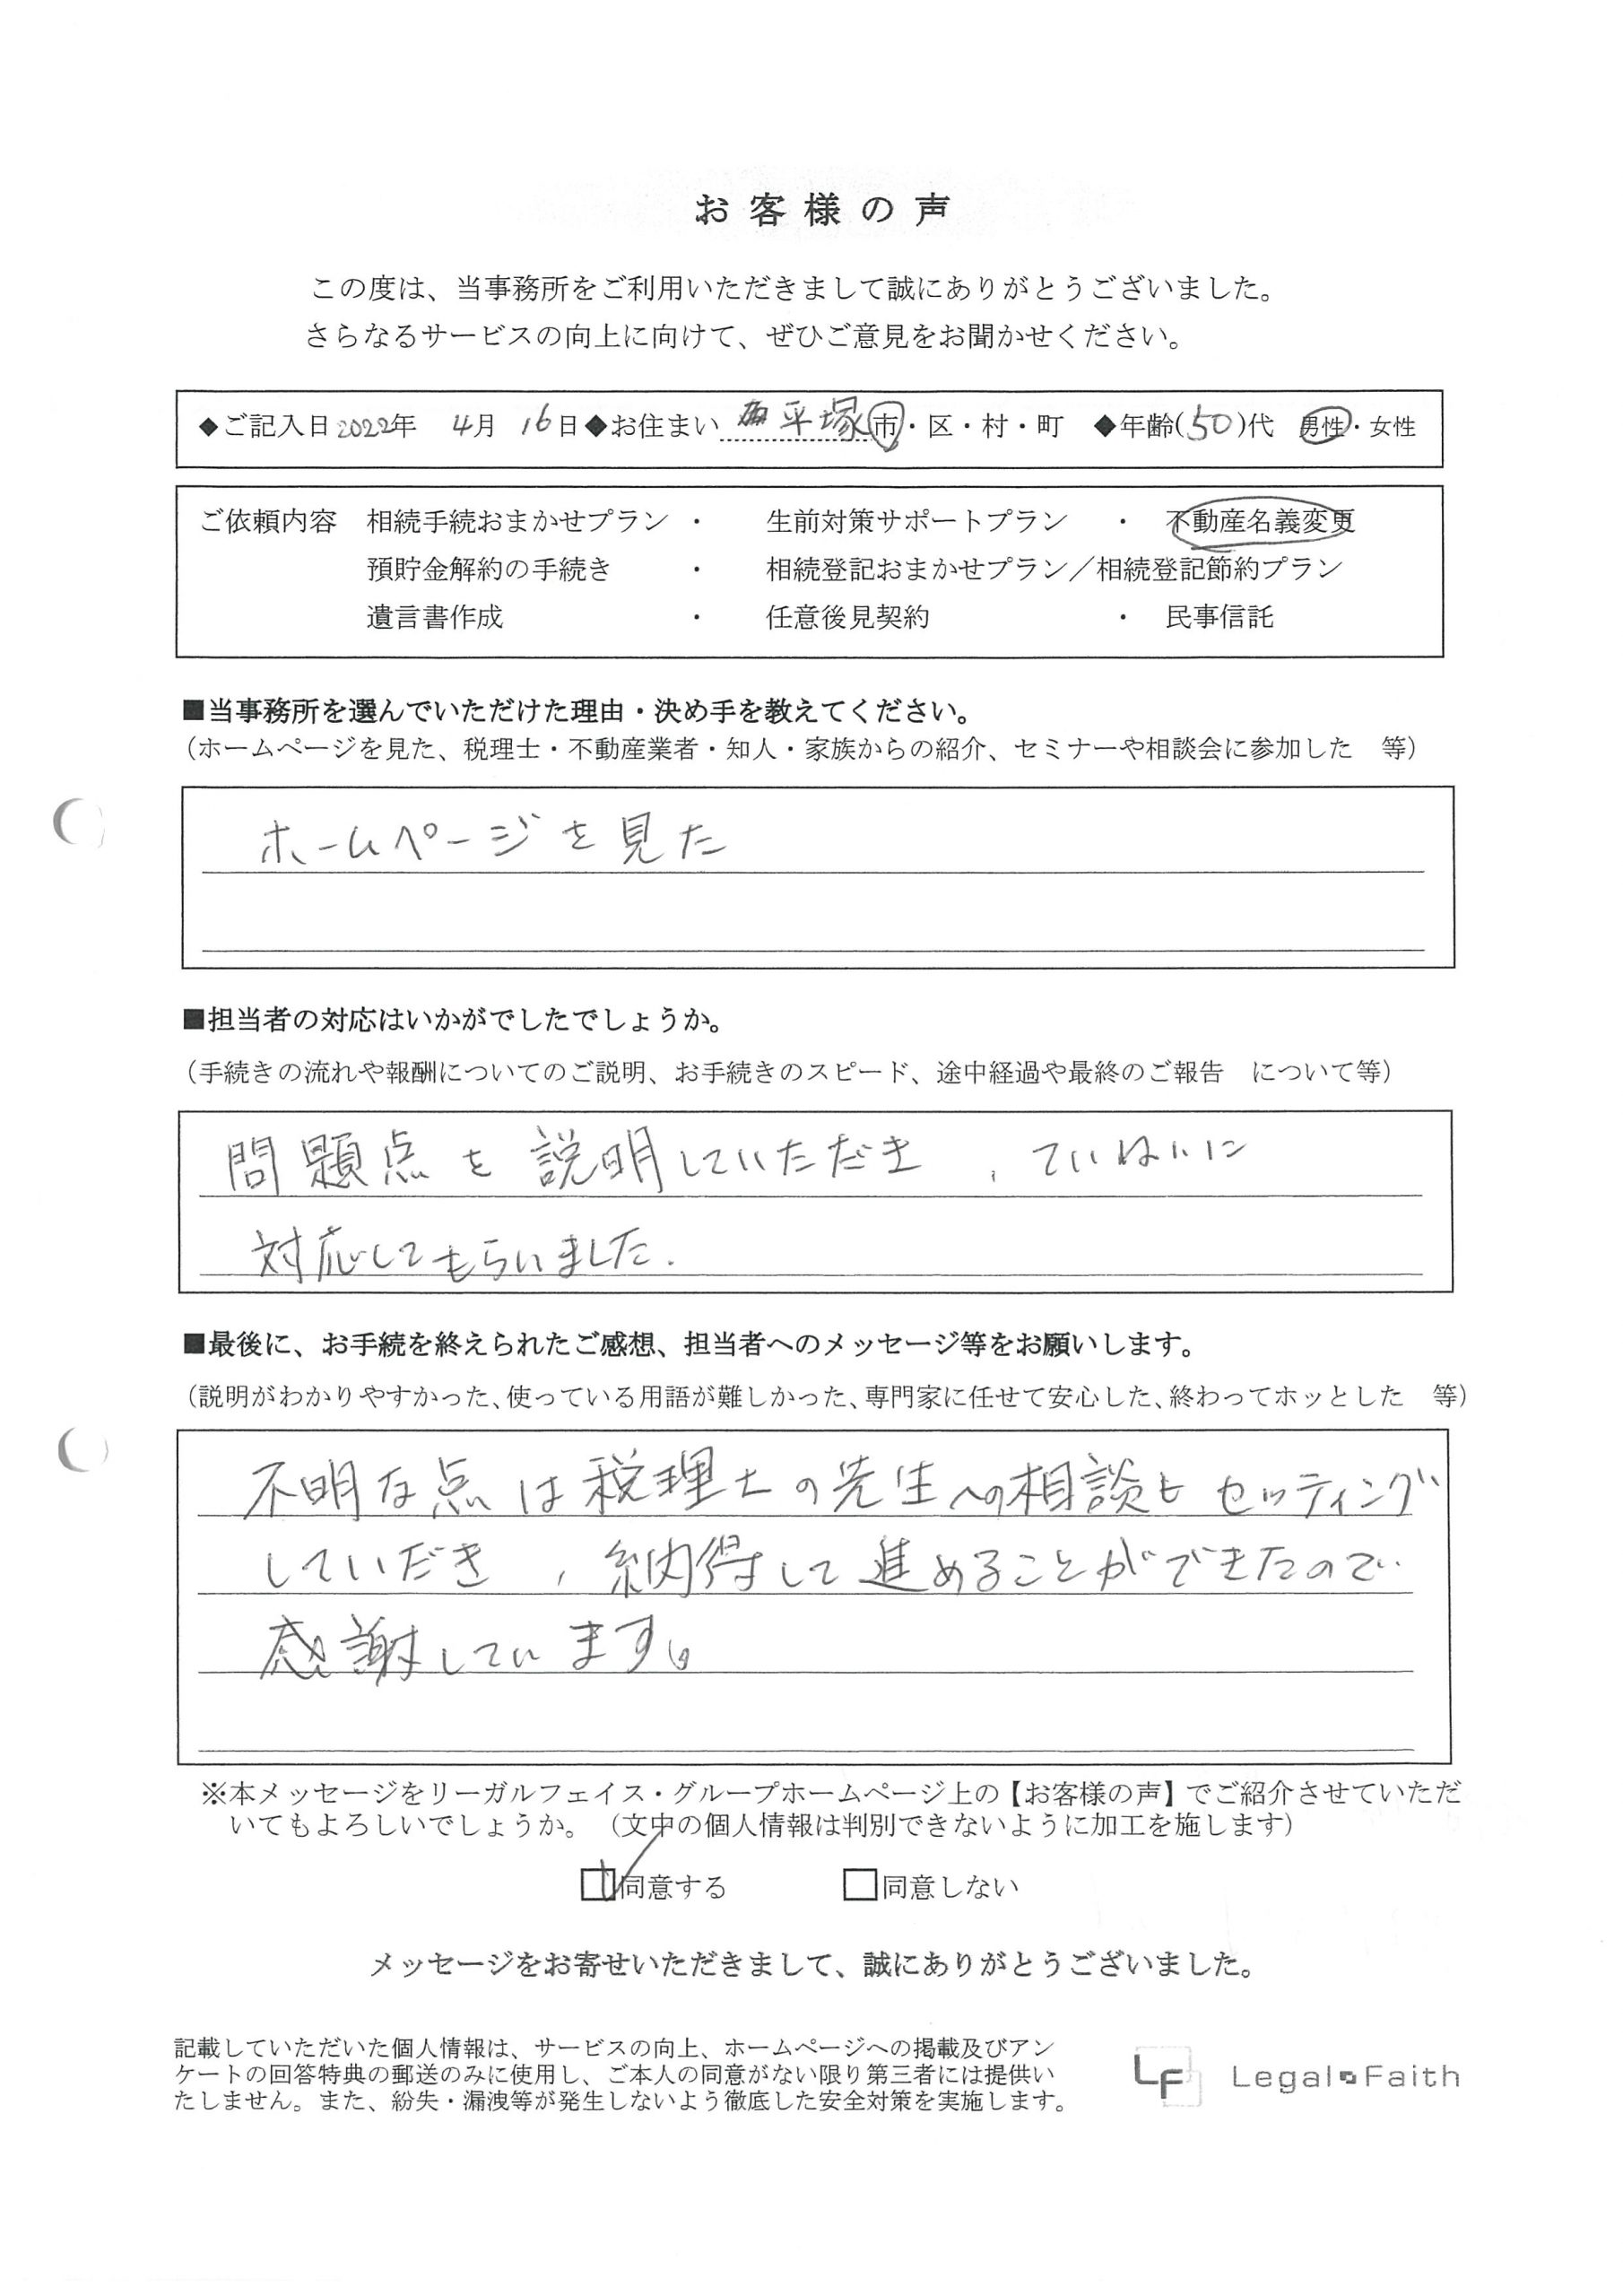 お客様の声
この度は、当事務所をご利用いただきまして誠にありがとうございました。
さらなるサービスの向上に向けて、ぜひご意見をお聞かせください。
◆ご記入日2022年 4月 16日◆お住まい 平塚市・区・村・町 ◆年齢(50)代 男性・女性
ご依頼内容 相続手続おまかせプラン ・ 生前対策サポートプラン ・ 不動産名義変更
預貯金解約の手続き ・ 相続登記おまかせプラン／相続登記節約プラン
遺言書作成 ・ 任意後見契約 ・ 民事信託
■当事務所を選んでいただけた理由・決め手を教えてください。
（ホームページを見た、税理士・不動産業者・知人・家族からの紹介、セミナーや相談会に参加した 等）
ホームページを見た
■担当者の対応はいかがでしたでしょうか。
（手続きの流れや報酬についてのご説明、お手続きのスピード、途中経過や最終のご報告 について等）
問題点を説明していただき、ていねいに
対応してもらいました.
■最後に、お手続を終えられたご感想、担当者へのメッセージ等をお願いします。
（説明がわかりやすかった、使っている用語が難しかった、専門家に任せて安心した、終わってホッとした 等）
不明な点は税理士の先生への相談もセッティング
していだき、納得して進めることができたので
感謝しています。
※本メッセージをリーガルフェイス・グループホームページ上の【お客様の声】でご紹介させていただ
いてもよろしいでしょうか。（文中の個人情報は判別できないように加工を施します）
☑同意する □同意しない
メッセージをお寄せいただきまして、誠にありがとうございました。
記載していただいた個人情報は、サービスの向上、ホームページへの掲載及びアン
ケートの回答特典の郵送のみに使用し、ご本人の同意がない限り第三者には提供い
たしません。また、紛失・漏洩等が発生しないよう徹底した安全対策を実施します。
LF Legal Faith